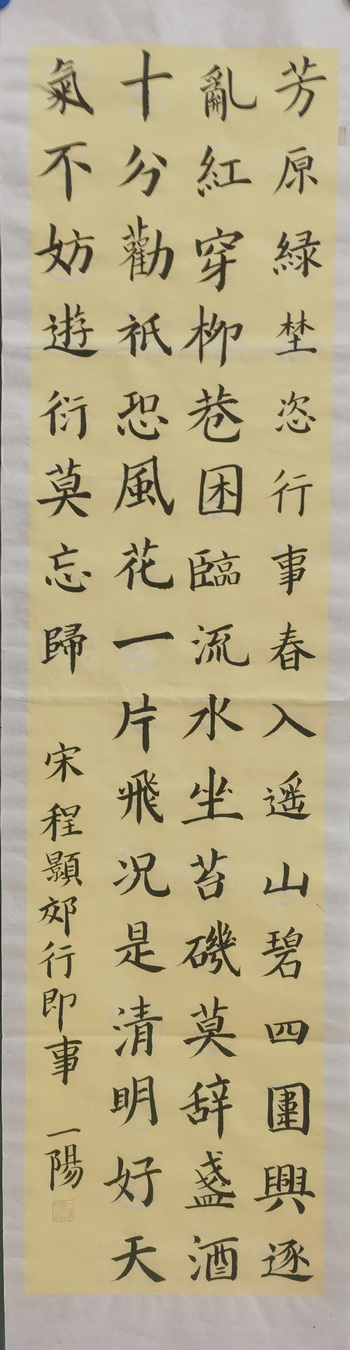 芳原緑埜恣行事春入遥山碧四圍興逐
亂紅穿柳巷困臨流水坐苔磯莫辞盞酒
十分勸祇恐風花一片飛况是清明好天
氣不妨遊衍莫忘歸
宋程顥郊行即事 一陽